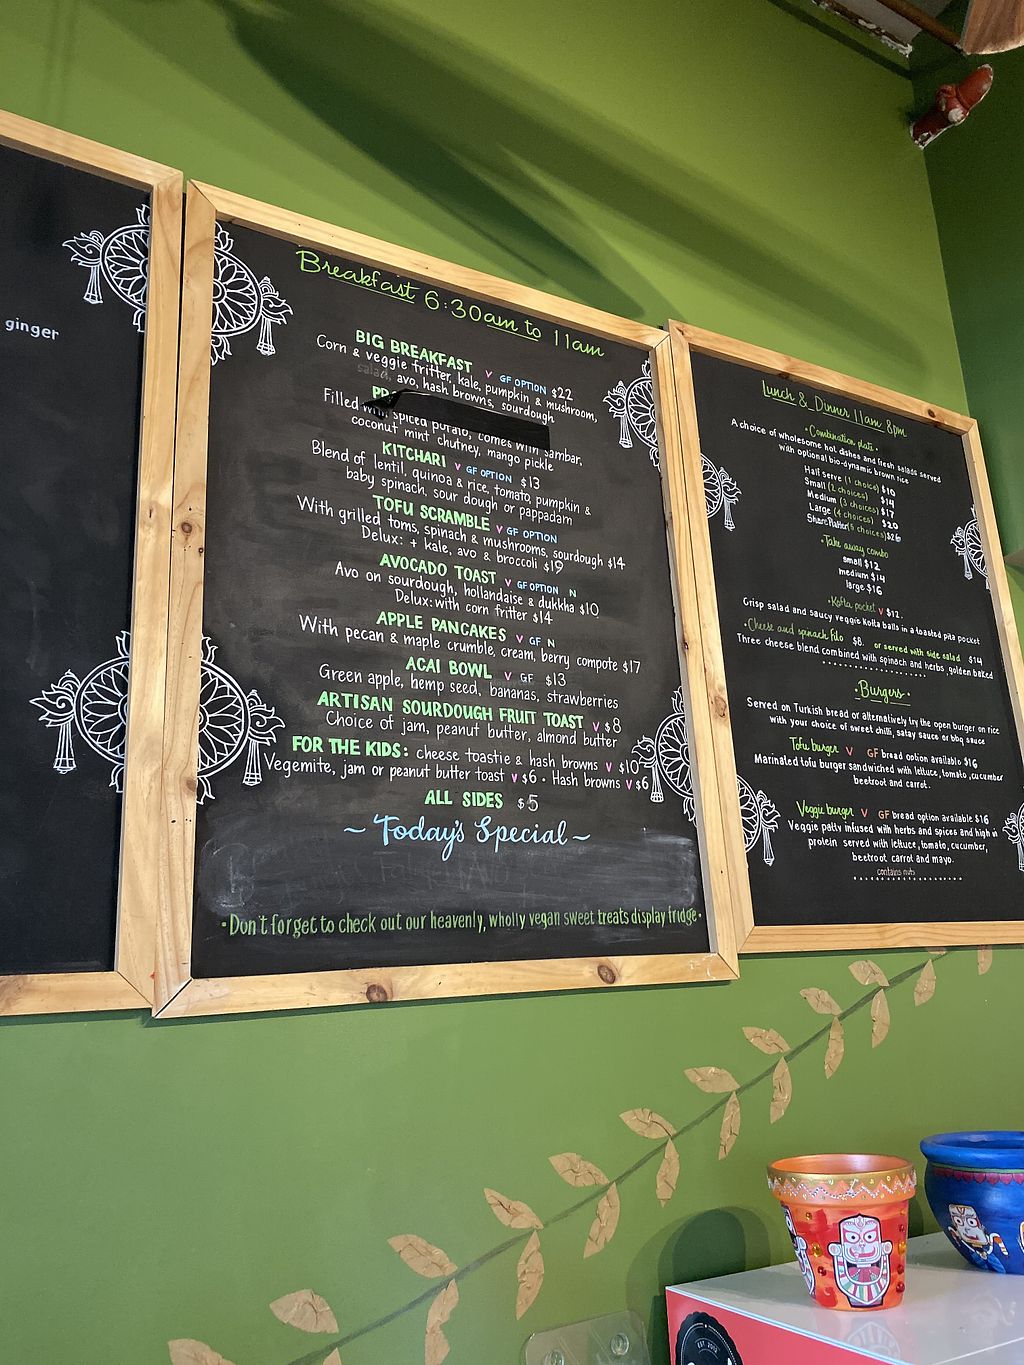 ginger
Breakfast 6:30am to 11am
BIG BREAKFAST V GF OPTION $22
Corn & veggie fritter, kale, pumpkin & mushroom,
salad, avo, hash browns, sourdough
Filled with spiced potato, comes with sambar,
coconut mint chutney, mango pickle
KITCHARI V GF OPTION $13
Blend of lentil, quinoa & rice, tomato, pumpkin &
baby spinach, sour dough or pappadam
TOFU SCRAMBLE V GF OPTION
With grilled toms, spinach & mushrooms, sourdough $14
Delux: + kale, avo & broccoli $19
AVOCADO TOAST V GF OPTION N
Avo on sourdough, hollandaise & dukkha $10
Delux: with corn fritter $14
APPLE PANCAKES V GF N
With pecan & maple crumble, cream, berry compote $17
ACAI BOWL V GF $13
Green apple, hemp seed, bananas, strawberries
ARTISAN SOURDOUGH FRUIT TOAST V $8
Choice of jam, peanut butter, almond butter
FOR THE KIDS: cheese toastie & hash browns V $10
Vegemite, jam or peanut butter toast V $6 · Hash browns V $6
ALL SIDES $5
~ Today's Special ~
· Don't forget to check out our heavenly, wholly vegan sweet treats display fridge ·
Lunch & Dinner 11am 8pm
· Combination plate ·
A choice of wholesome hot dishes and fresh salads served
with optional bio-dynamic brown rice
Half Serve (1 choice) $10
Small (2 choices) $14
Medium (3 choices) $17
Large (4 choices) $20
Share Platter (5 choices) $26
· Take away combo
small $12
medium $14
large $16
· Kofta pocket V $12.
Crisp salad and saucy veggie kofta balls in a toasted pita pocket
· Cheese and spinach filo $8. or served with side salad $14
Three cheese blend combined with spinach and herbs, golden baked
· Burgers ·
Served on Turkish bread or alternatively try the open burger on rice
with your choice of sweet chilli, satay sauce or bbq sauce
Tofu burger V GF bread option available $16
Marinated tofu burger sandwiched with lettuce, tomato, cucumber
beetroot and carrot.
Veggie burger V GF bread option available $16
Veggie patty infused with herbs and spices and high in
protein served with lettuce, tomato, cucumber,
beetroot carrot and mayo.
contains nuts